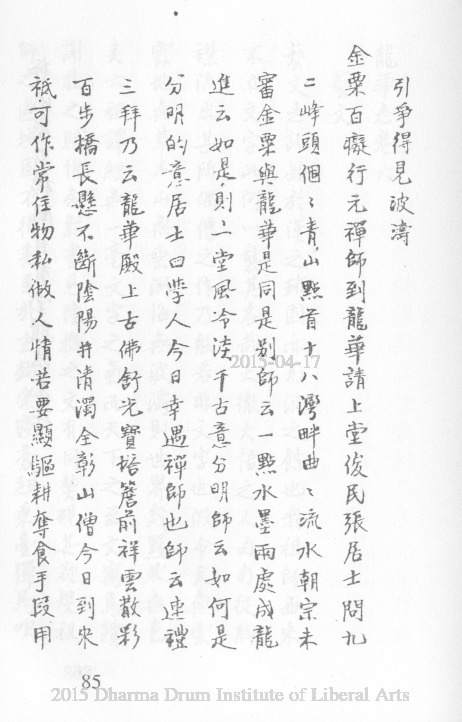 引爭得見波濤
金粟百癡行元禪師到龍華請上堂俊民張居士問九
二峰頭個〻青山點首十八灣畔曲〻流水朝宗未
審金粟與龍華是同是別師云一點水墨兩處成龍
進云如是則一堂風冷淡千古意分明師云如何是
分明的意居士曰學人今日幸遇禪師也師云速禮
三拜乃云龍華殿上古佛舒光寶塔簷前祥雲散彩
百步橋長懸不斷陰陽井清濁全彰山僧今日到來
祇可作常住物私做人情若要顯驅耕奪食手段用
2015-04-17
85
2015 Dharma Drum Institute of Liberal Arts